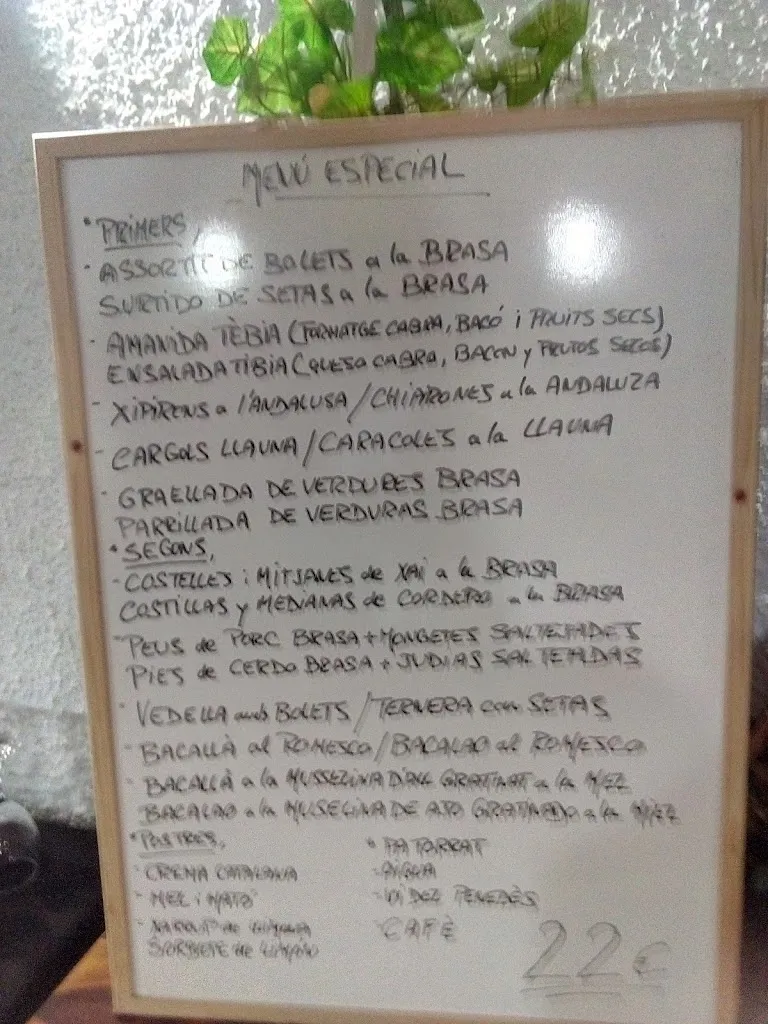 MENÚ ESPECIAL
* PRIMERS,
- ASSORTIT DE BOLETS a la BRASA
SURTIDO DE SETAS a la BRASA
- AMANIDA TÈBIA (FORMATGE CABRA, BACÓ i FRUITS SECS)
ENSALADA TIBIA (QUESO CABRA, BACON y FRUTOS SECOS)
- XIPIRONS a l'ANDALUSA / CHIPIRONES a la ANDALUZA
- CARGOLS LLAUNA / CARACOLES a la LLAUNA
- GRAELLADA DE VERDURES BRASA
PARRILLADA DE VERDURAS BRASA
* SEGONS,
- COSTELLES i MITJANES de XAI a la BRASA
COSTILLAS y MEDIANAS de CORDERO a la BRASA
- PEUS de PORC BRASA + MONGETES SALTEJADES
PIES de CERDO BRASA + JUDIAS SALTEADAS
- VEDELLA amb BOLETS / TERNERA con SETAS
- BACALLÀ al ROMESCO / BACALAO al ROMESCO
- BACALLÀ a la MUSSELINA D'ALL GRATINAT a la MEL
BACALAO a la MUSELINA DE AJO GRATINADO a la MIEL
* POSTRES,
- CREMA CATALANA
- MEL i MATÓ
de
SORBETE de LIMÓN
* PA TORRAT
- AIGUA
- VI DEL PENEDÈS
- CAFÈ
22 €